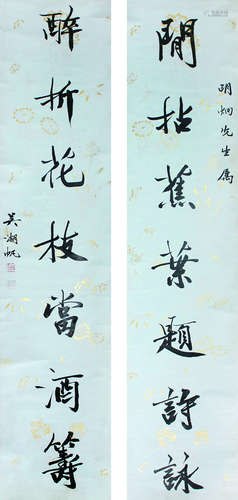 明炯先生属
閒拈蕉葉題詩詠
醉折花枝當酒籌
吳湖帆